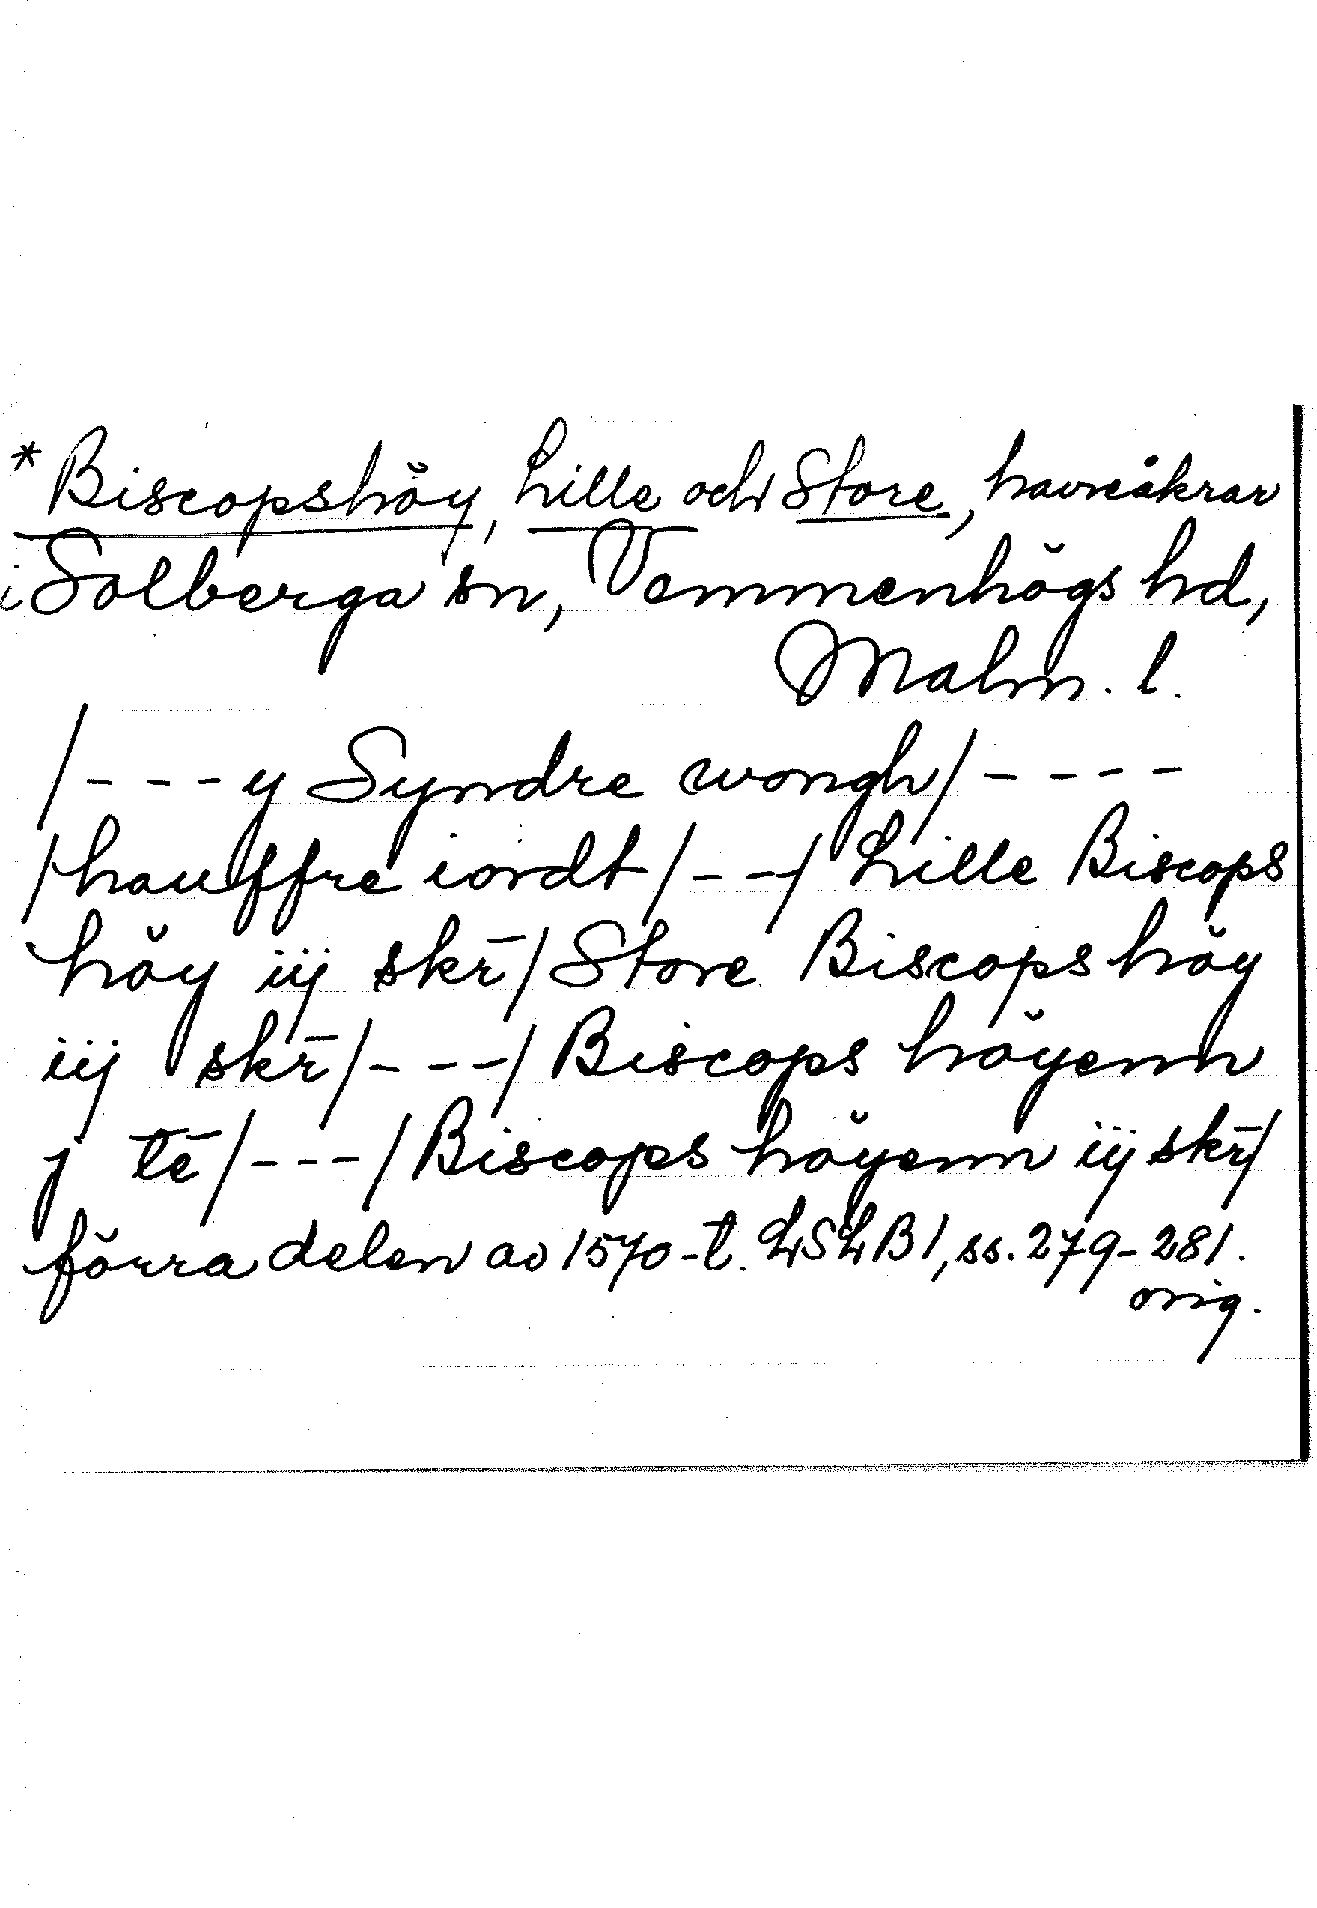 * Biscopshöy, Lille och Store, havreåkrar
i Solberga sn, Vemmenhögs hd,
Malm. l.
/---y Syndre wongh/----
/hauffre iordt/---/ Lille Biscops
höy iij skr̄/Store Biscops höy
iij skr̄/---/Biscops höyenn
j tē/---/Biscops höyenn iij skr̄/
förra delen av 1570-t. LSLB1, ss. 279-281.
orig.